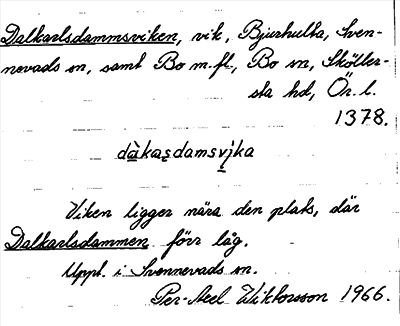 Dalkarlsdammsviken, vik, Bjurhulta, Sven-
nevads sn, samt Bo m.fl., Bo sn, Sköller-
sta hd, Ör. l.
1378.
dàkasdamsvika
Viken ligger nära den plats, där
Dalkarlsdammen förr låg.
Uppt. i Svennevads sn.
Per-Axel Wiktorsson 1966.